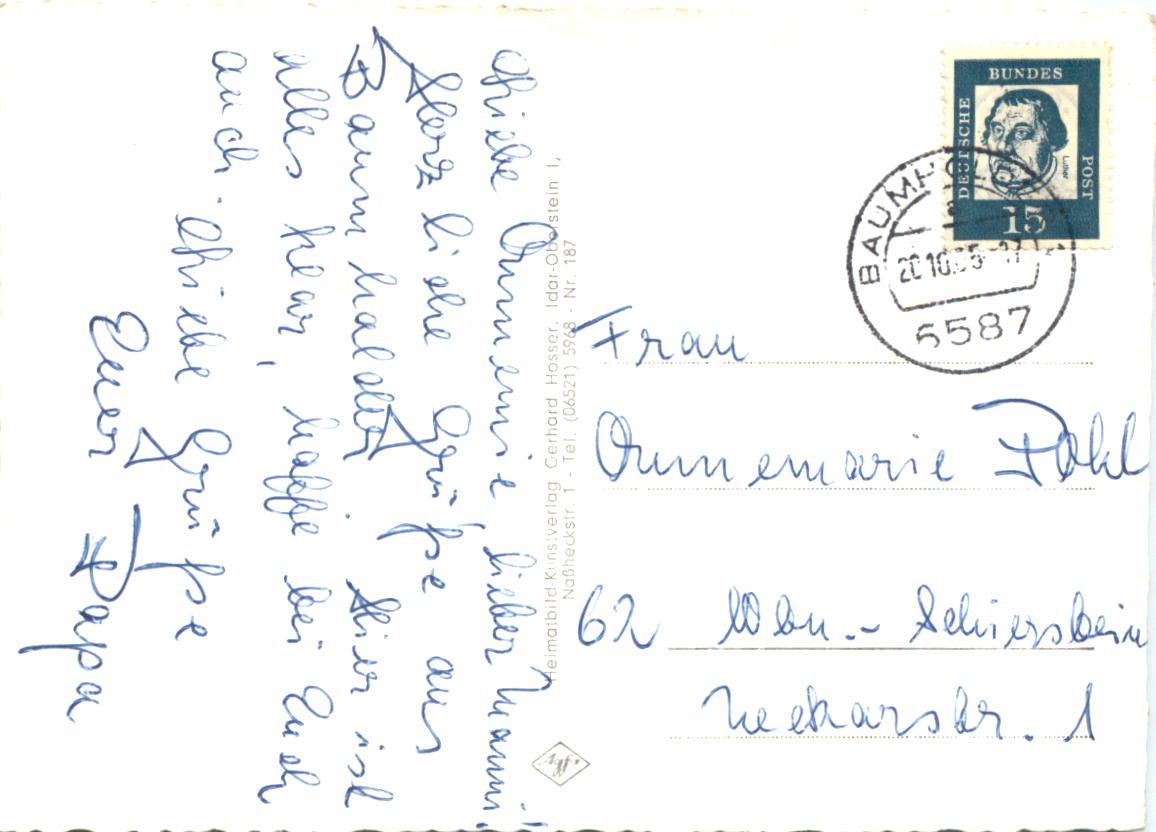 Liebe Annemie, lieber Manni!
Herzliche Grüße aus
Baumholder. Hier ist
alles klar, hoffe bei Euch
auch. Liebe Grüße
Euer Papa
Heimatbild-Kunstverlag Gerhard Hosser, Idar-Oberstein 1,
Naßheckstr. 1 - Tel. (06521) 5968 - Nr. 187
DEUTSCHE BUNDES POST
Luther
15
BAUMHOLDER
20.10.65-17
6587
Frau
Annemarie Pohl
62 Wbn.- Schierstein
Neckarstr. 1